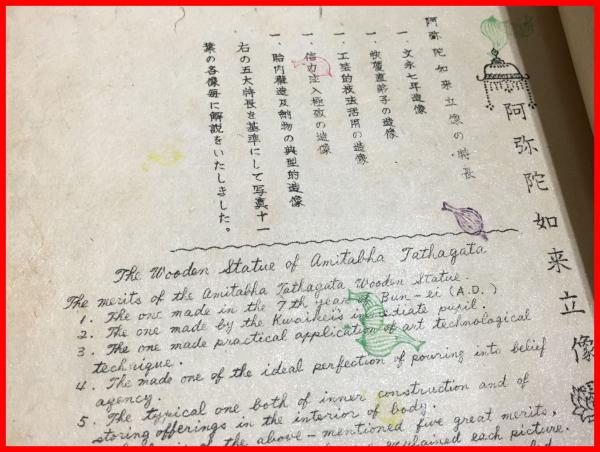 阿弥陀如来立像
阿弥陀如来立像の特長
一、文永七年造像
一、快慶直弟子の造像
一、工芸的技法活用の造像
一、信力注入極致の造像
一、胎内構造及納物の典型的造像
右の五大特長を基準にして写真十一
葉の各像毎に解説をいたしました。
The Wooden Statue of Amitabha Tathagata
The merits of the Amitabha Tathagata Wooden Statue.
1. The one made in the 7th year of Bun-ei (A.D.)
2. The one made by the Kwaikei's immediate pupil.
3. The one made practical application of art technological
technique.
4. The made one of the ideal perfection of pouring into belief
agency.
5. The typical one both of inner construction and of
storing offerings in the interior of body.
of the above-mentioned five great merits,
explained each picture.